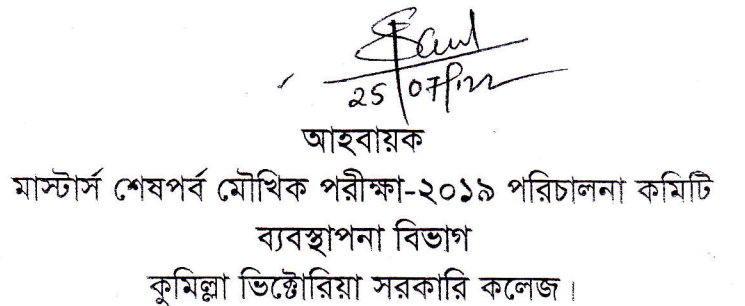 25/07/22
আহবায়ক
মাস্টার্স শেষপর্ব মৌখিক পরীক্ষা-২০১৯ পরিচালনা কমিটি
ব্যবস্থাপনা বিভাগ
কুমিল্লা ভিক্টোরিয়া সরকারি কলেজ।